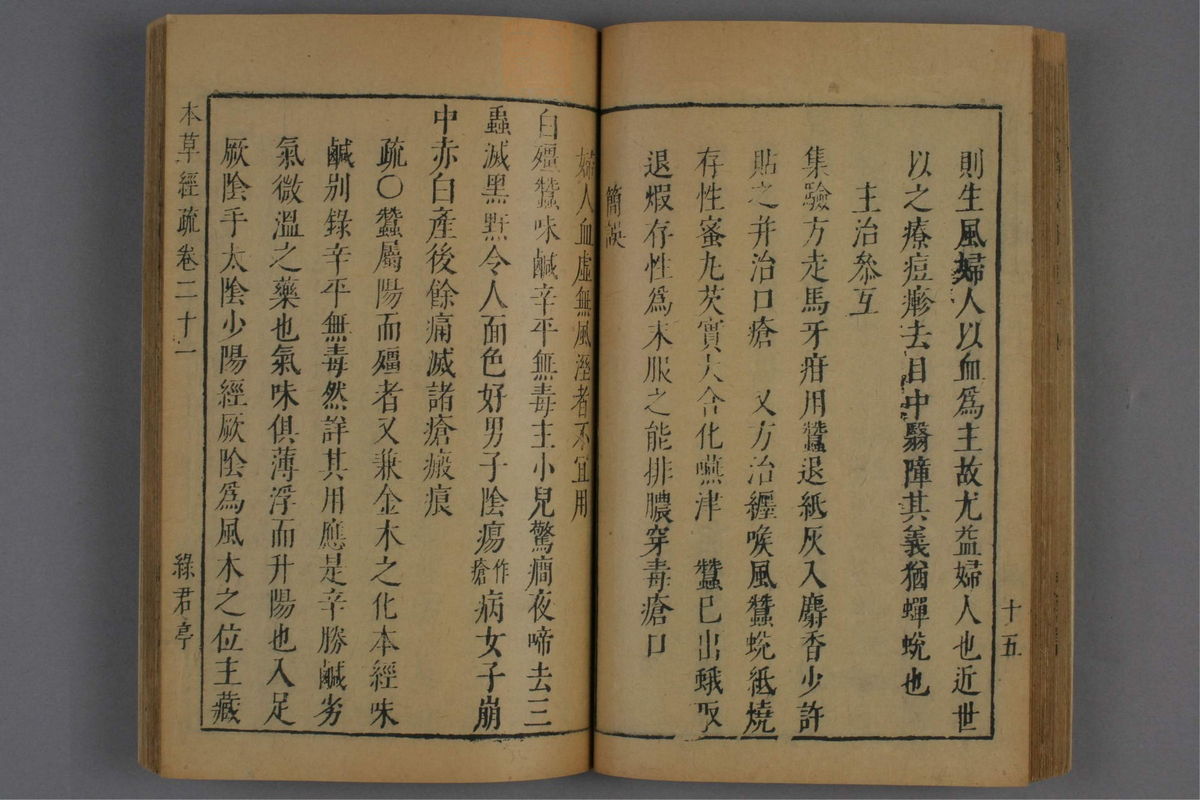 十五
則生風婦人以血爲主故尤益婦人也近世
以之療痘疹去目中翳障其義猶蟬蛻也
主治參互
集驗方走馬牙疳用蠶退紙灰入麝香少許
貼之并治口瘡　又方治纏喉風蠶蛻紙燒
存性蜜丸芡實大含化嚥津　蠶已出蛾取
退煆存性爲末服之能排膿穿毒瘡口
簡誤
婦人血虛無風溼者不宜用
白殭蠶味鹹辛平無毒主小兒驚癎夜啼去三
蟲滅黑䵟令人面色好男子陰瘍作瘡病女子崩
中赤白產後餘痛滅諸瘡瘢痕
疏〇蠶屬陽而殭者又兼金木之化本經味
鹹别錄辛平無毒然詳其用應是辛勝鹹劣
氣微溫之藥也氣味俱薄浮而升陽也入足
厥陰手太陰少陽經厥陰爲風木之位主藏
本草經疏卷二十一
綠君亭